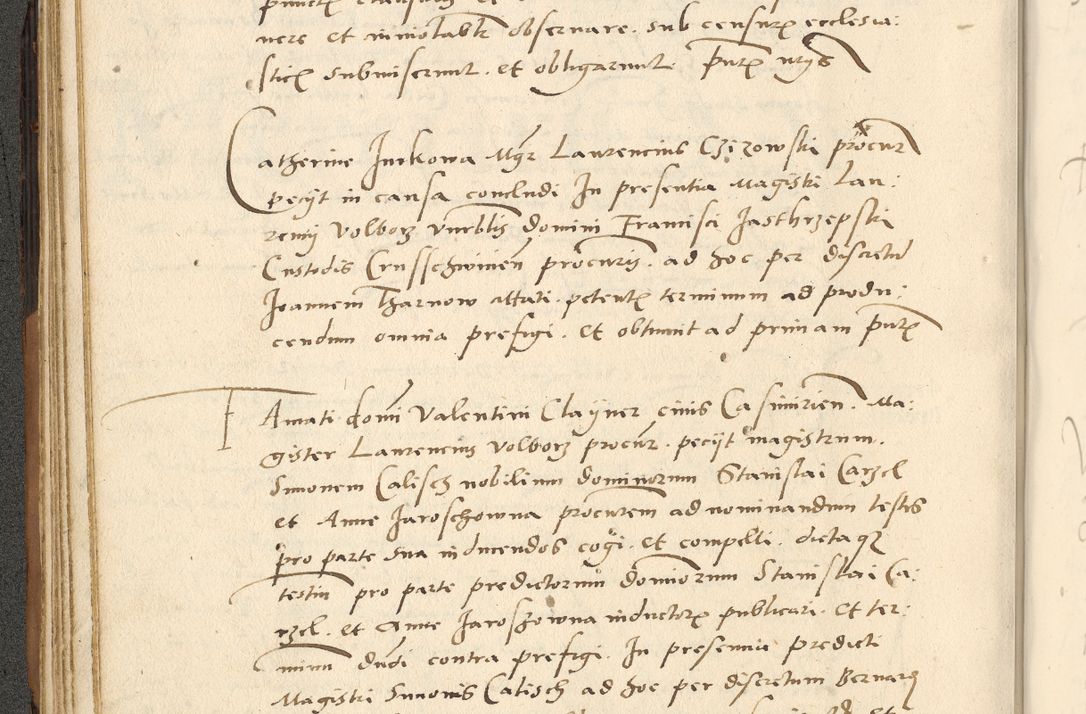 nere et inviolabiliter observare. sub censuris ecclesia:
sticis submiserunt. et obligarunt. Prntibus
Catherine Jurkowa Mgr Laurencius Czizowski procur
peciit in causa concludi In presentia Magistri Lau:
rencij Volborz Vnrblis domini Francisci Jasthrzepski
Custodis Crusschwicien procuris. ad hoc per discretum
Joannem Tharnow citati petentis terminum ad produ:
cendum omnia prefigi. Et obtinuit ad primam Juris
Amati domi Valentini Clayner civis Casimirien. Ma:
gister Laurencius Volborz procur. peciit magistrum.
Simonem Calisch nobilium dominorum Stanislai Carzel
et Anne Jaroschowna procurem ad nominandum testes
pro parte sua inducendos cogi. et compelli. dictaque
testium pro parte predictorum dominorum Stanislai Ca:
rzel. et Anne Jaroschowna inductorum publicari. Et ter:
minum dudi contra prefigi. In presentia predicti
Magistri Simonis Calisch ad hoc per discretum Bernard